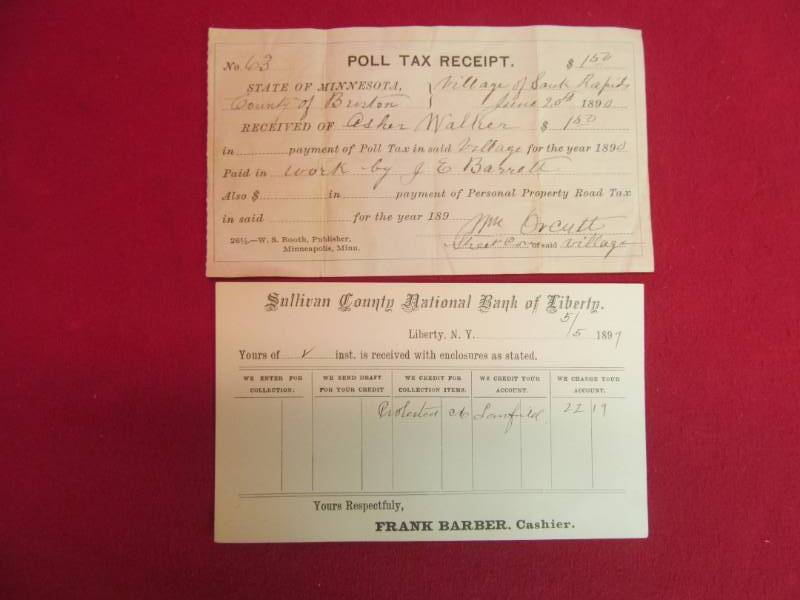 No. 63 POLL TAX RECEIPT. $ 1 50
STATE OF MINNESOTA, Village of Sauk Rapids
County of Benton June 20th 1890
RECEIVED OF Asher Walker $ 1 50
in payment of Poll Tax in said Village for the year 1890
Paid in work by J E Barrett
Also $ in payment of Personal Property Road Tax
in said for the year 189
Wm Orcutt
26½.—W. S. Booth, Publisher, Street of said Village
Minneapolis, Minn.
Sullivan County National Bank of Liberty.
Liberty, N. Y. 5/5 1897
Yours of inst. is received with enclosures as stated.
WE ENTER FOR COLLECTION. WE SEND DRAFT FOR YOUR CREDIT WE CREDIT FOR COLLECTION ITEMS. WE CREDIT YOUR ACCOUNT. WE CHARGE YOUR ACCOUNT.
Protested 22 19
Yours Respectfuly,
FRANK BARBER, Cashier.